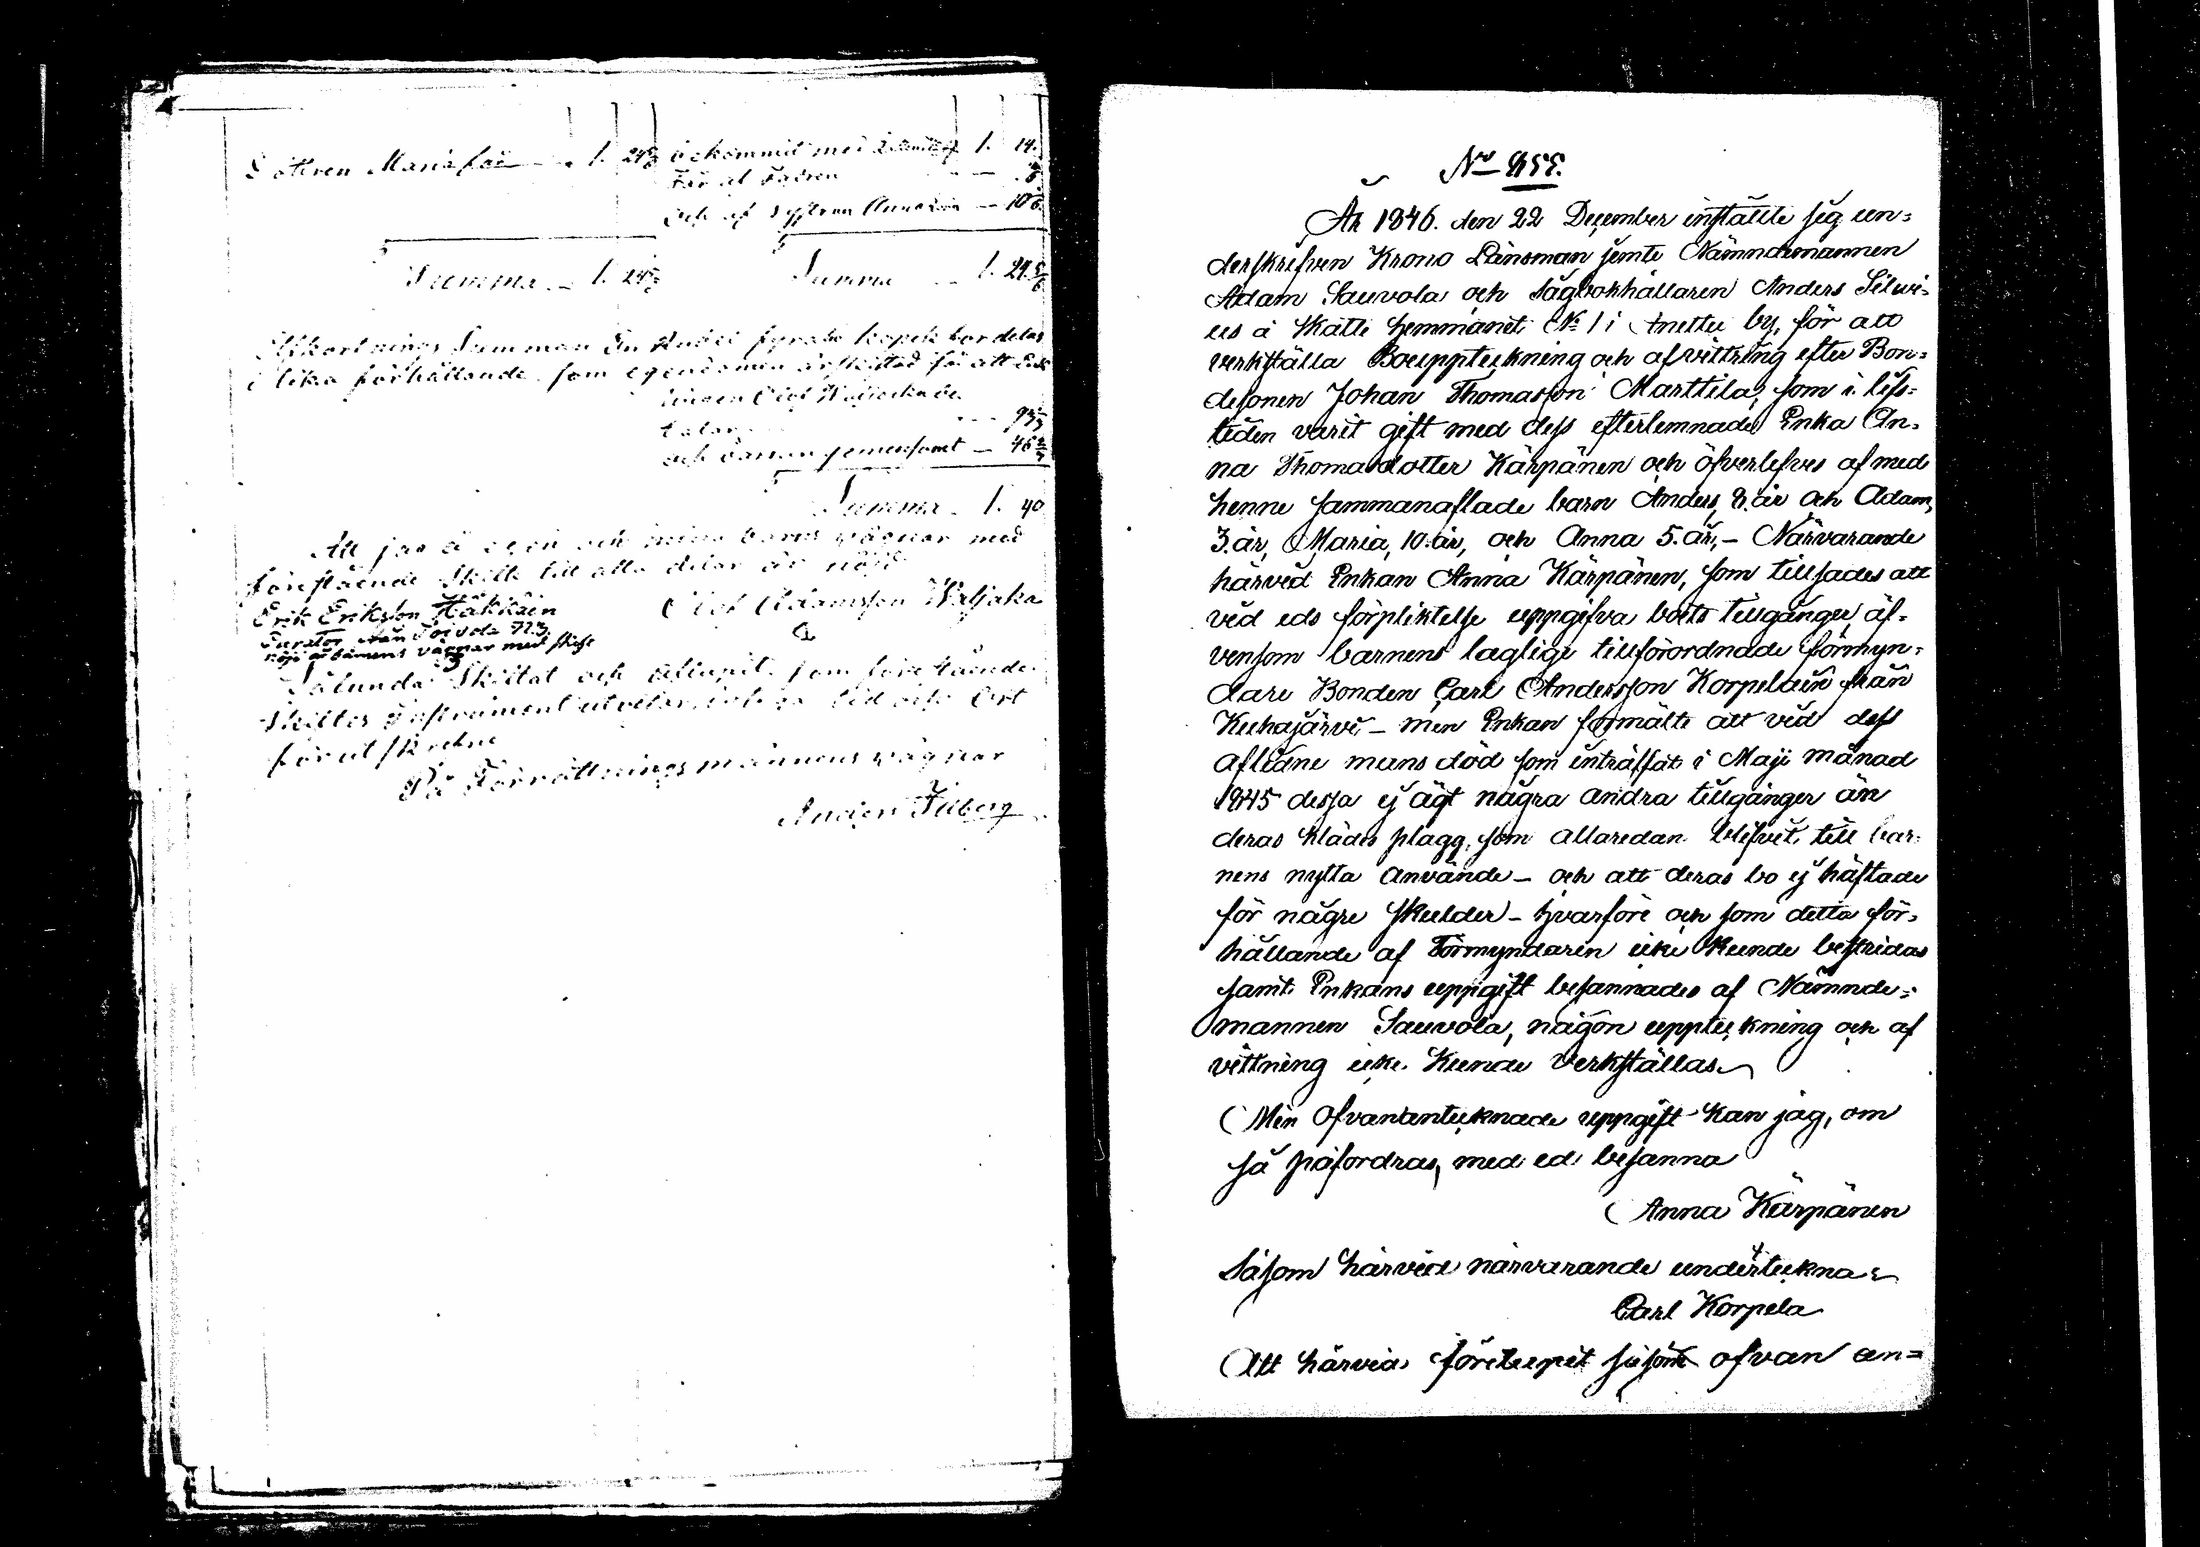 Dottren Maria får 1. 24⅚
bekommit med 1. 14.
Får af Fadren
och af Systren Anna 10⅚
Summa 1. 24⅚
Summa 1. 24⅚
Afkortnings Summan En Rubel fyratio kopek fördelas
i lika förhållande som egendomen är skiftad så att Enk
lingen Olof Waljacka be
talar 93⅓
och barnen gemensamt 46⅔
Summa 1. 40
Att jag å egen och mina barns vägnar med
föreståènde Skifte till alla delar är nöjd
Olof Adamsson Waljaka
Erik Eriksson Häkkäin
Curator från Toivola N:3,
nöjd å barnens vägnar med skift
Sålunda Skiftat och aflupit som föreståènde
Skiftes Instrument utvisar, intyga tid och Ort
förutskrefne
På Förrättningsmännens vägnar
Anders Filberg
No 455.
År 1846. den 22 December instälte sig un=
derskrefven Krono Länsman jemte Nämndemannen
Adam Sauvola och Sågbokhållaren Anders Silwi=
us å Skatte hemmanet No 1 i Anettu by, för att
verkställa Bouppteckning och afvittring efter Bon=
desonen Johan Thomasson Marttila, som i lifs=
tiden varit gift med dess efterlemnade Enka An=
na Thomasdotter Kärpänen och öfverlefves af med
henne sammanaflade barn Anders, 8. år och Adam,
3. år, Maria, 10. år, och Anna 5. år, - Närvarande
härvid Enkan Anna Kärpänen, som tillsades att
vid eds förpliktelse uppgifva boets tillgångar, äf=
vensom barnens laglige tillförordnade förmyn=
dare Bonden Carl Andersson Korpelain från
Kuhajärvi - men Enkan förmälte att vid dess
aflidne mans död som inträffat i Maji månad
1845 dessa ej ägt några andra tillgånger än
deras klädes plagg, som allaredan blifvit till bar=
nens nytta använde - och att deras bo ej häftade
för någre skulder - hvarföre och som detta för=
hållande af Förmyndaren icke kunde bestridas
samt Enkans uppgift besannades af Nämnde=
mannen Sauvola, någon uppteckning och af
vittning icke kunde verkställas
Min ofvanantecknade uppgift kan jag, om
så påfordras, med ed besanna
Anna Kärpänen
Såsom härvid närvarande undertecknar
Carl Korpela
Att härvid förelupit såsom ofvan an=